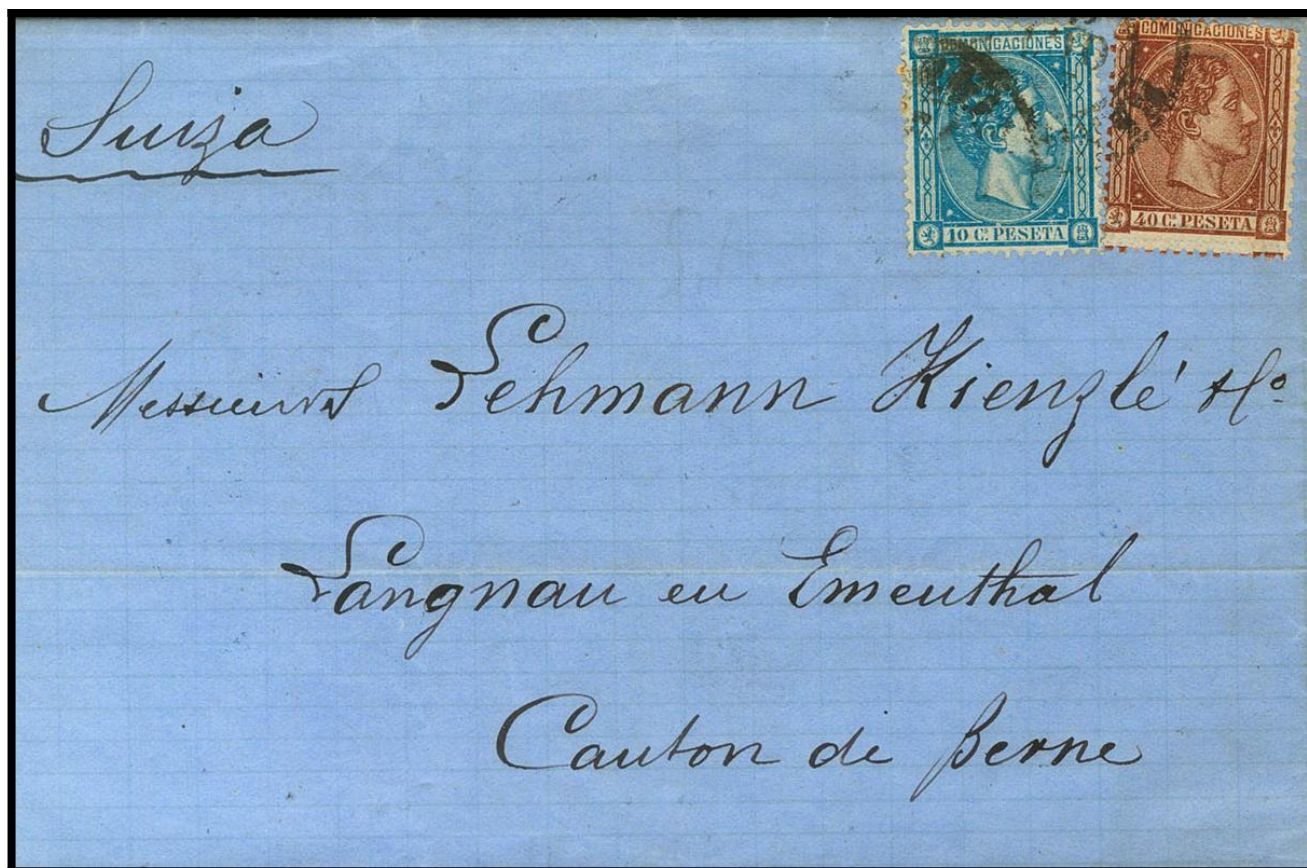 COMUNICACIONES
10 Cˢ. PESETA
COMUNICACIONES
40 Cˢ. PESETA
Suiza
Messieurs Lehmann Kienzlé & Cº
Langnau en Ementhal
Canton de Berne